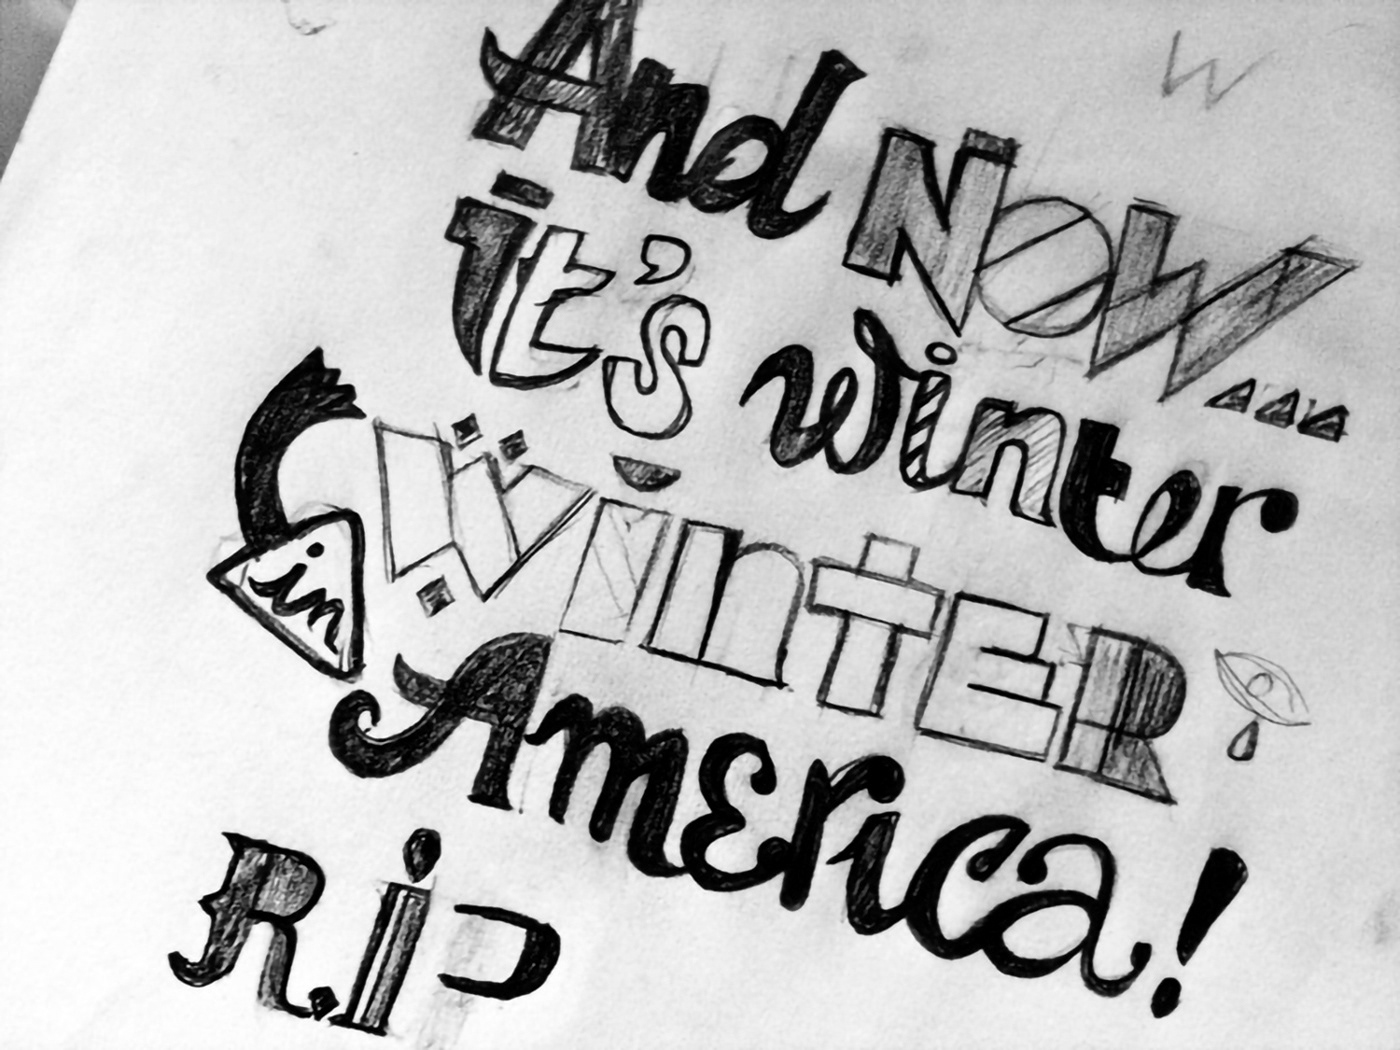 W
And NOW...
it's winter
WINTER
in
AmErica!
R.iP